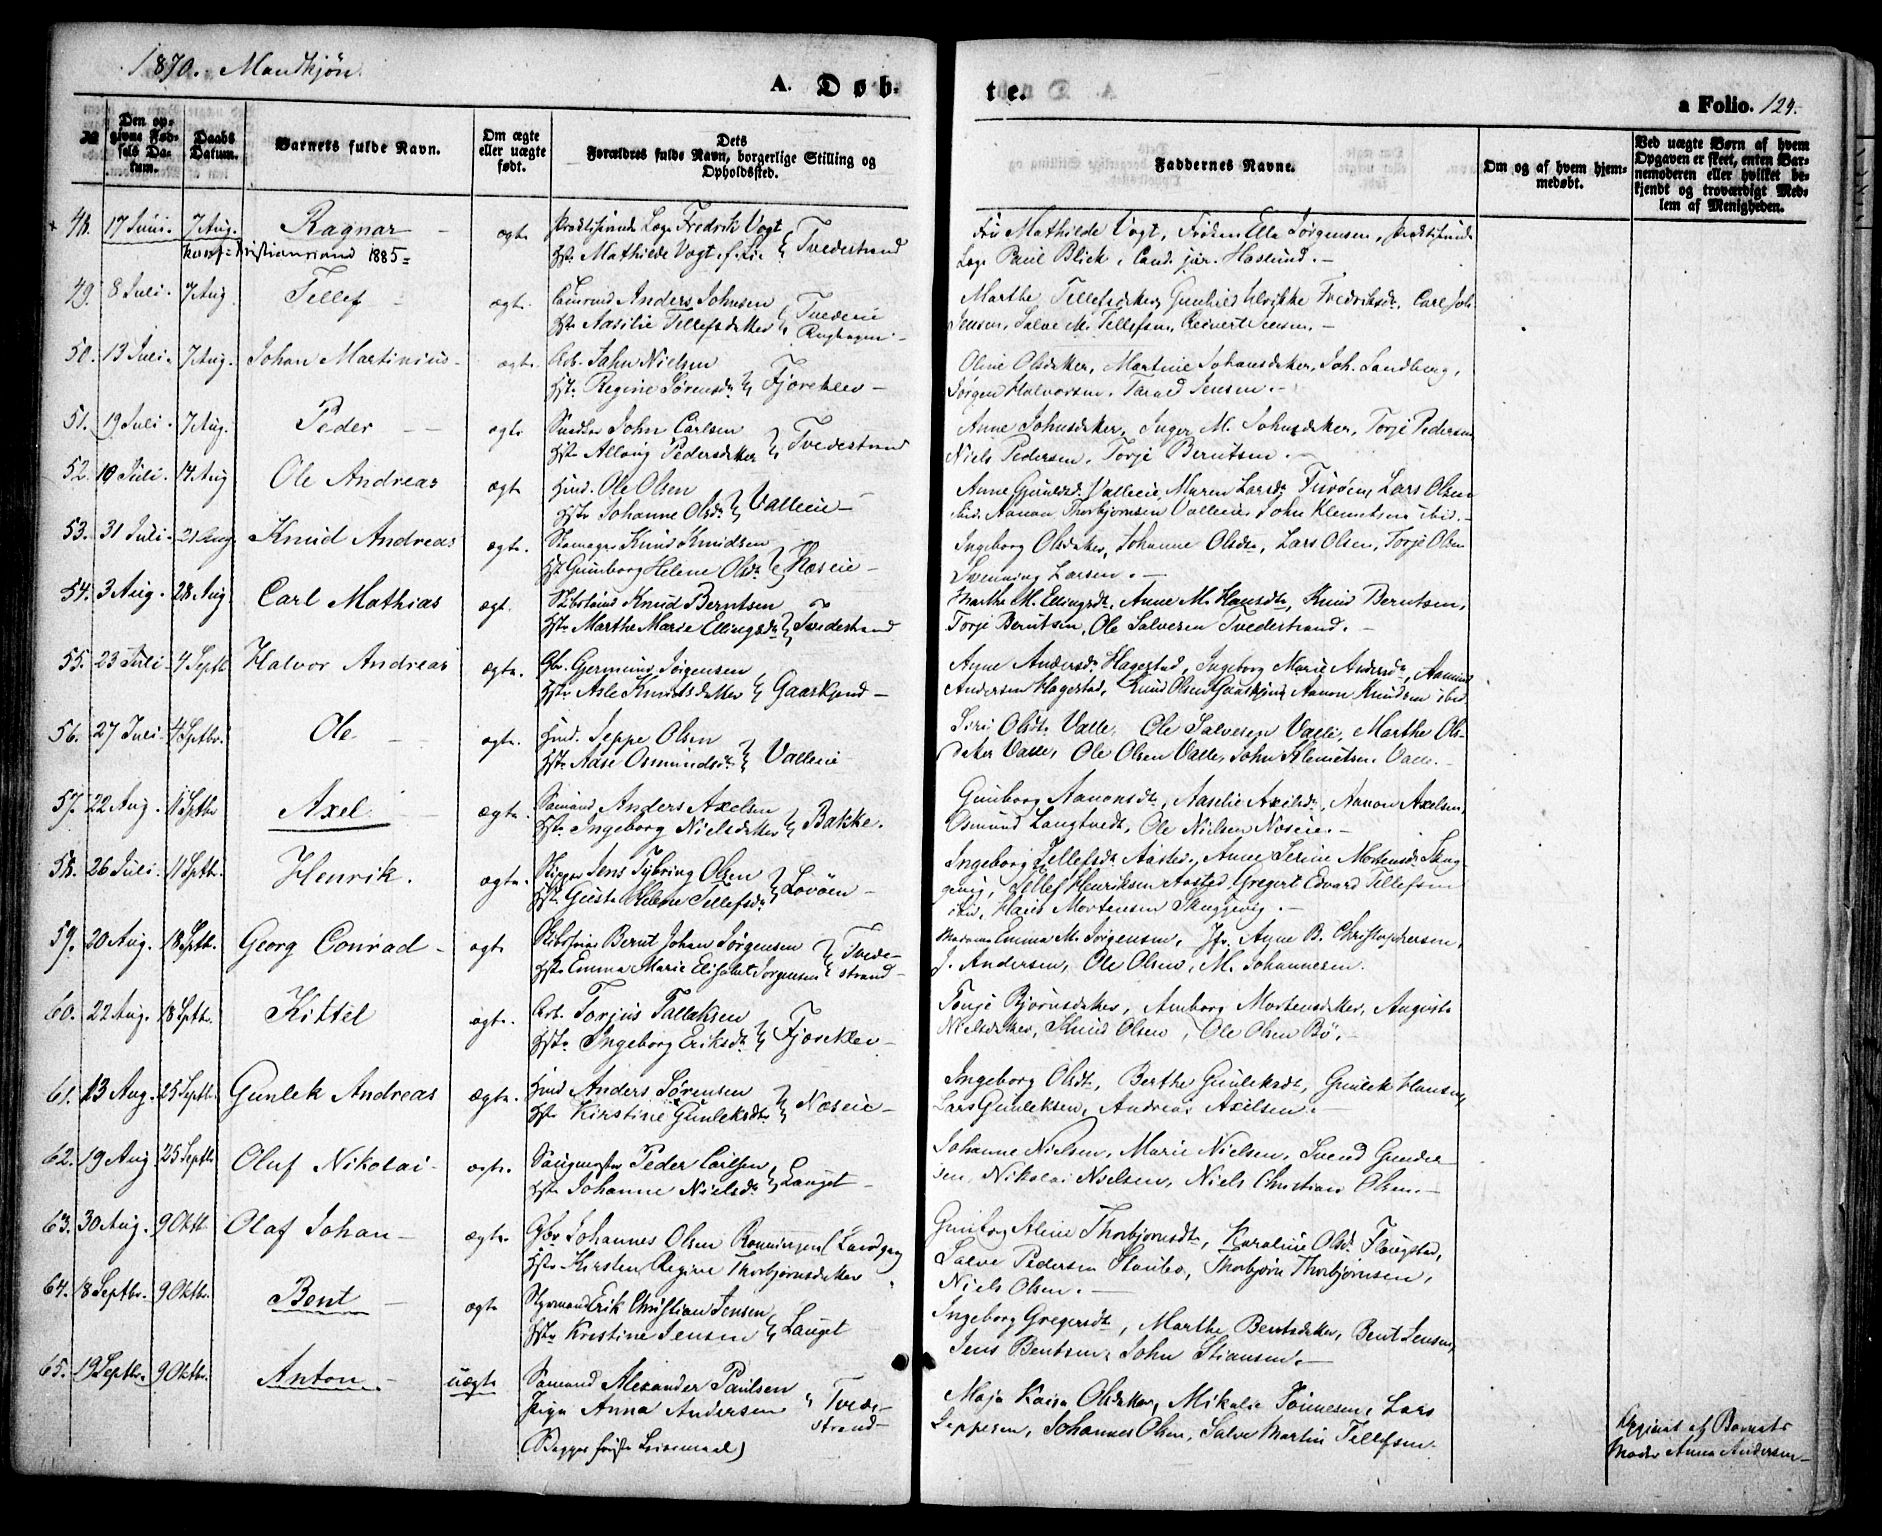 1870. Mandkjøn.
A. Døb-
te.
a Folio. 124.
№
Den opgivne Fødsels Datum.
Daabs Datum.
Barnets fulde Navn.
Om ægte eller uægte født.
Dets Forældres fulde Navn, borgerlige Stilling og Opholdssted.
Faddernes Navne.
Om og af hvem hjemmedøbt.
Ved uægte Børn af hvem Opgaven er skeet, enten Barnemoderen eller hvilket bekjendt og troværdigt Medlem af Menigheden.
48. 17 Juni 7 Aug. Ragnar - ægte Læge Fredrik Vogt Tvedestrand
Kristianssand 1885
Hst. Mathilde Vogt f. Lie
Mathilde Vogt, Frøken Ella Jørgensen,
Læge Paul Blich, Cand. jur. Haslund. -
49. 8 Juli. 7 Aug. Tellef - ægte. Anders Johnsen
Hst. Aasilie Tellefsdatter
Marthe Tellefsdatter, Gunhild Ulrikke Fredriksdt. Carl Joh.
Jensen, Salve M. Tellefsen,
50. 13 Juli 7 Aug. Johan Martinius - ægte. Arb. Jahn Nielsen
Hst. Regine Sørensdt. Fjereklev -
Oline Olsdatter, Martine Johansdatter, Joh. Sandberg,
Jørgen Halvorsen, Tarald Jensen. -
51. 19 Juli. 7 Aug. Peder - ægte Snedker John Carlsen
Hst. Pedersdatter Tvedestrand
Anne Johnsdatter, Inger M. Johnsdatter, Torje Pedersen
Niels Pedersen, Torje Berntsen. -
52. 19 Juli. 14 Aug Ole Andreas ægte Hmd. Ole Olsen
Hst. Johanne Olsdt. Valleeie -
Valleeie, Maren Larsdt. Furøen, Lars Olsen
ibid. Aanon Thorbjørnsen Valleeie, John Klemetsen ibid. -
53. 31 Juli. 21 Aug. Knud Andreas ægte. Knud Knudsen
Hst. Gunborg Helene Olsdt. Næseie -
Ingeborg Olsdatter, Johanne Olsdt., Lars Olsen, Torje Olsen
Svenning Larsen. -
54. 3 Aug. 28 Aug Carl Mathias ægt. Knud Berntsen
Hst. Marthe Marie Ellingsdt. Tvedestrand
Marthe M. Ellingsdt, Anne M. Hansdt, Knud Berntsen,
Torje Berntsen, Ole Salvesen Tvedestrand. -
55. 23 Juli 4 Septb. Halvor Andreas ægte. Gbr. Germund Jørgensen
Hst. Asle Knudsdatter Gaaskjend -
Anne Andersdt. Hagestad, Ingeborg Marie Andersdt,
Andersen Hagestad, Knud Olsen Gaaskjend Aanon Knudsen ibid
56. 27 Juli. 4 Septbr. Ole - ægte. Hmd. Jeppe Olsen
Hst. Aase Osmundsdt. Valleeie
Siri Olsdt. Valle. Ole Salvesen Valle, Marthe Ols-
datter Valle, Ole Olsen Valle, John Klemetsen. Valle. -
57. 22 Aug. 11 Septbr Axel. - ægte. Sømand Anders Axelsen
Hst. Ingeborg Nielsdatter Bakke.
Gunborg Aanonsdt, Aaselie Axelsdt, Aanon Axelsen,
Osmund Langtvedt, Ole Nielsen Næseie. -
58. 26 Juli. 11 Septb. Henrik. ægte. Skipper Jens Tybring Olsen
Hst. Helene Tellefsdt. Lovøen -
Ingeborg Tellefsdt. Aasted, Anne Serine Mortensdt. Skug-
gevig, Tellef Henriksen Aasted, Gregert Edvard Tellefsen
ibid, Hans Mortensen Skuggevig. -
59. 20 Aug. 18 Septb. Georg Conrad - ægte Bernt Johan Jørgensen Tvede-
Hst. Emma Marie Elisabet Jørgensen strand -
Madame Emma M. Jørgensen, Jfr. Anne B. Christophersen,
J. Andersen, Ole Olsen, M. Johannesen.
60. 22 Aug. 18 Septbr. Kittel ægte. Arb. Torjus Tallaksen
Hst. Ingeborg Eriksdt. Fjereklev -
Tonje Bjørnsdatter, Amborg Mortensdatter, Auguste
Nielsdatter, Knud Olsen, Ole Olsen Bø, -
61. 13 Aug. 25 Septb. Gunlek Andreas ægte. Hmd Anders Sørensen
Hst. Kirstine Gunleksdt. Næseie -
Ingeborg Olsdt, Berthe Gunleksdt, Gunlek Hansen,
Lars Gunleksen, Andreas Axelsen. -
62. 19 Aug 25 Septb. Oluf Nikolai - ægte. Saugmester Peder Carlsen
Hst. Johanne Nielsdt. Lauget -
Johanne Nielsen, Marie Nielsen, Svend Gunder-
sen, Nikolai Nielsen, Niels Christian Olsen. -
63. 30 Aug. 9 Oktb. Olaf Johan - ægte. Gbr. Johannes Olsen Rønningen
Hst. Kirsten Regine Thorbjørnsdatter
Gunborg Aline Thorbjørnsdt, Karoline Olsdt. Flougstad,
Salve Pedersen Thorbjørn Thorbjørnsen,
Niels Olsen. -
64. 18 Septbr. 9 Oktbr. Bent - ægte Styrmand Erik Christian Jensen
Hst. Kristine Jensen Lauget
Ingeborg Gregersdt, Marthe Bentsdatter, Bent Jensen,
Jens Bentsen, John Stiansen. -
65. 19 Septbr. 9 Oktbr. Anton. - uægte Sømand Alexander Paulsen
Pige Anna Andersen Tvede-
strand -
(Begges første Leiermaal)
Maja Kaisa Olsdatter, Mikalie Tønnesen, Lars
Jeppesen, Johannes Olsen, Salve Martin Tellefsen.
Opgivet af Barnets
Moder Anna Andersen -